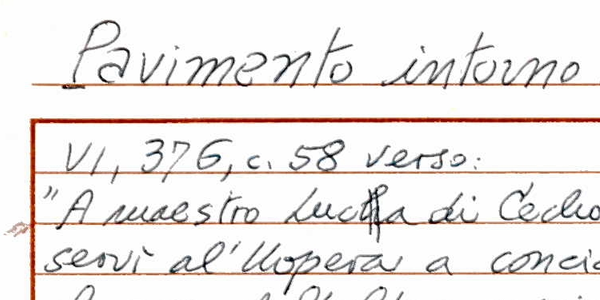 Pavimento intorno
VI, 376, c. 58 verso:
"A maestro Lucha di Cecho
servì al'Uopera a concia